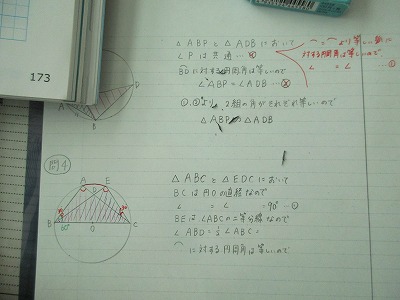 173
△ABPと△ADBにおいて
∠Pは共通…④
BDに対する円周角は等しいので
∠ABP=∠ADB…
①,②より、2組の角がそれぞれ等しいので
△ABP∽△ADB
⌒=⌒より等しい弧に
対する円周角は等しいので
∠ =∠ …①
A
B
D
問4
A
E
D
B
O
C
60°
△ABCと△EDCにおいて
BCは円Oの直径なので
∠ =∠ =90°…①
BEは∠ABCの二等分線なので
∠ABD=½∠ABC=
⌒に対する円周角は等しいので